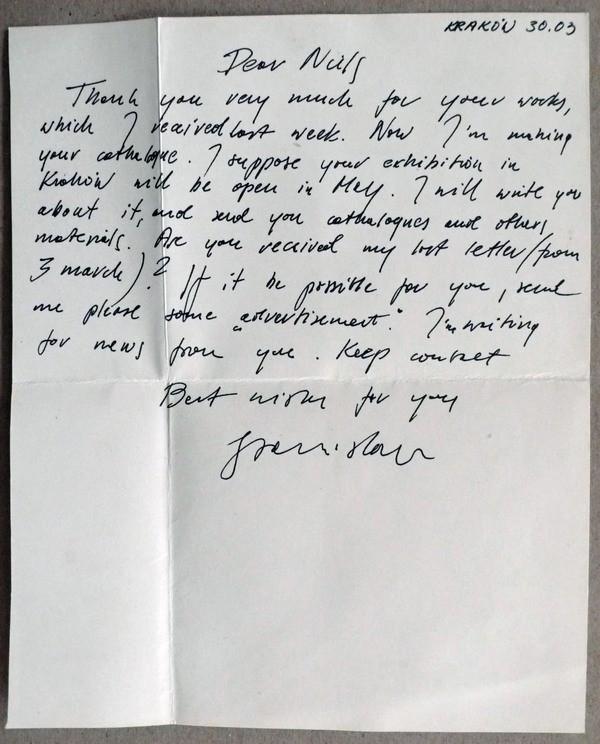 KRAKÓW 30.03
Dear Niels
Thank you very much for your works,
which I received last week. Now I'm making
your cathalogue. I suppose your exhibition in
Kraków will be open in May. I will write you
about it, and send you cathalogues and others
materials. Are you received my last letter (from
3 march)? If it be possible for you, send
me please some "advertisement". I'm waiting
for news from you. Keep contact
Best wishes for you
Stanislav